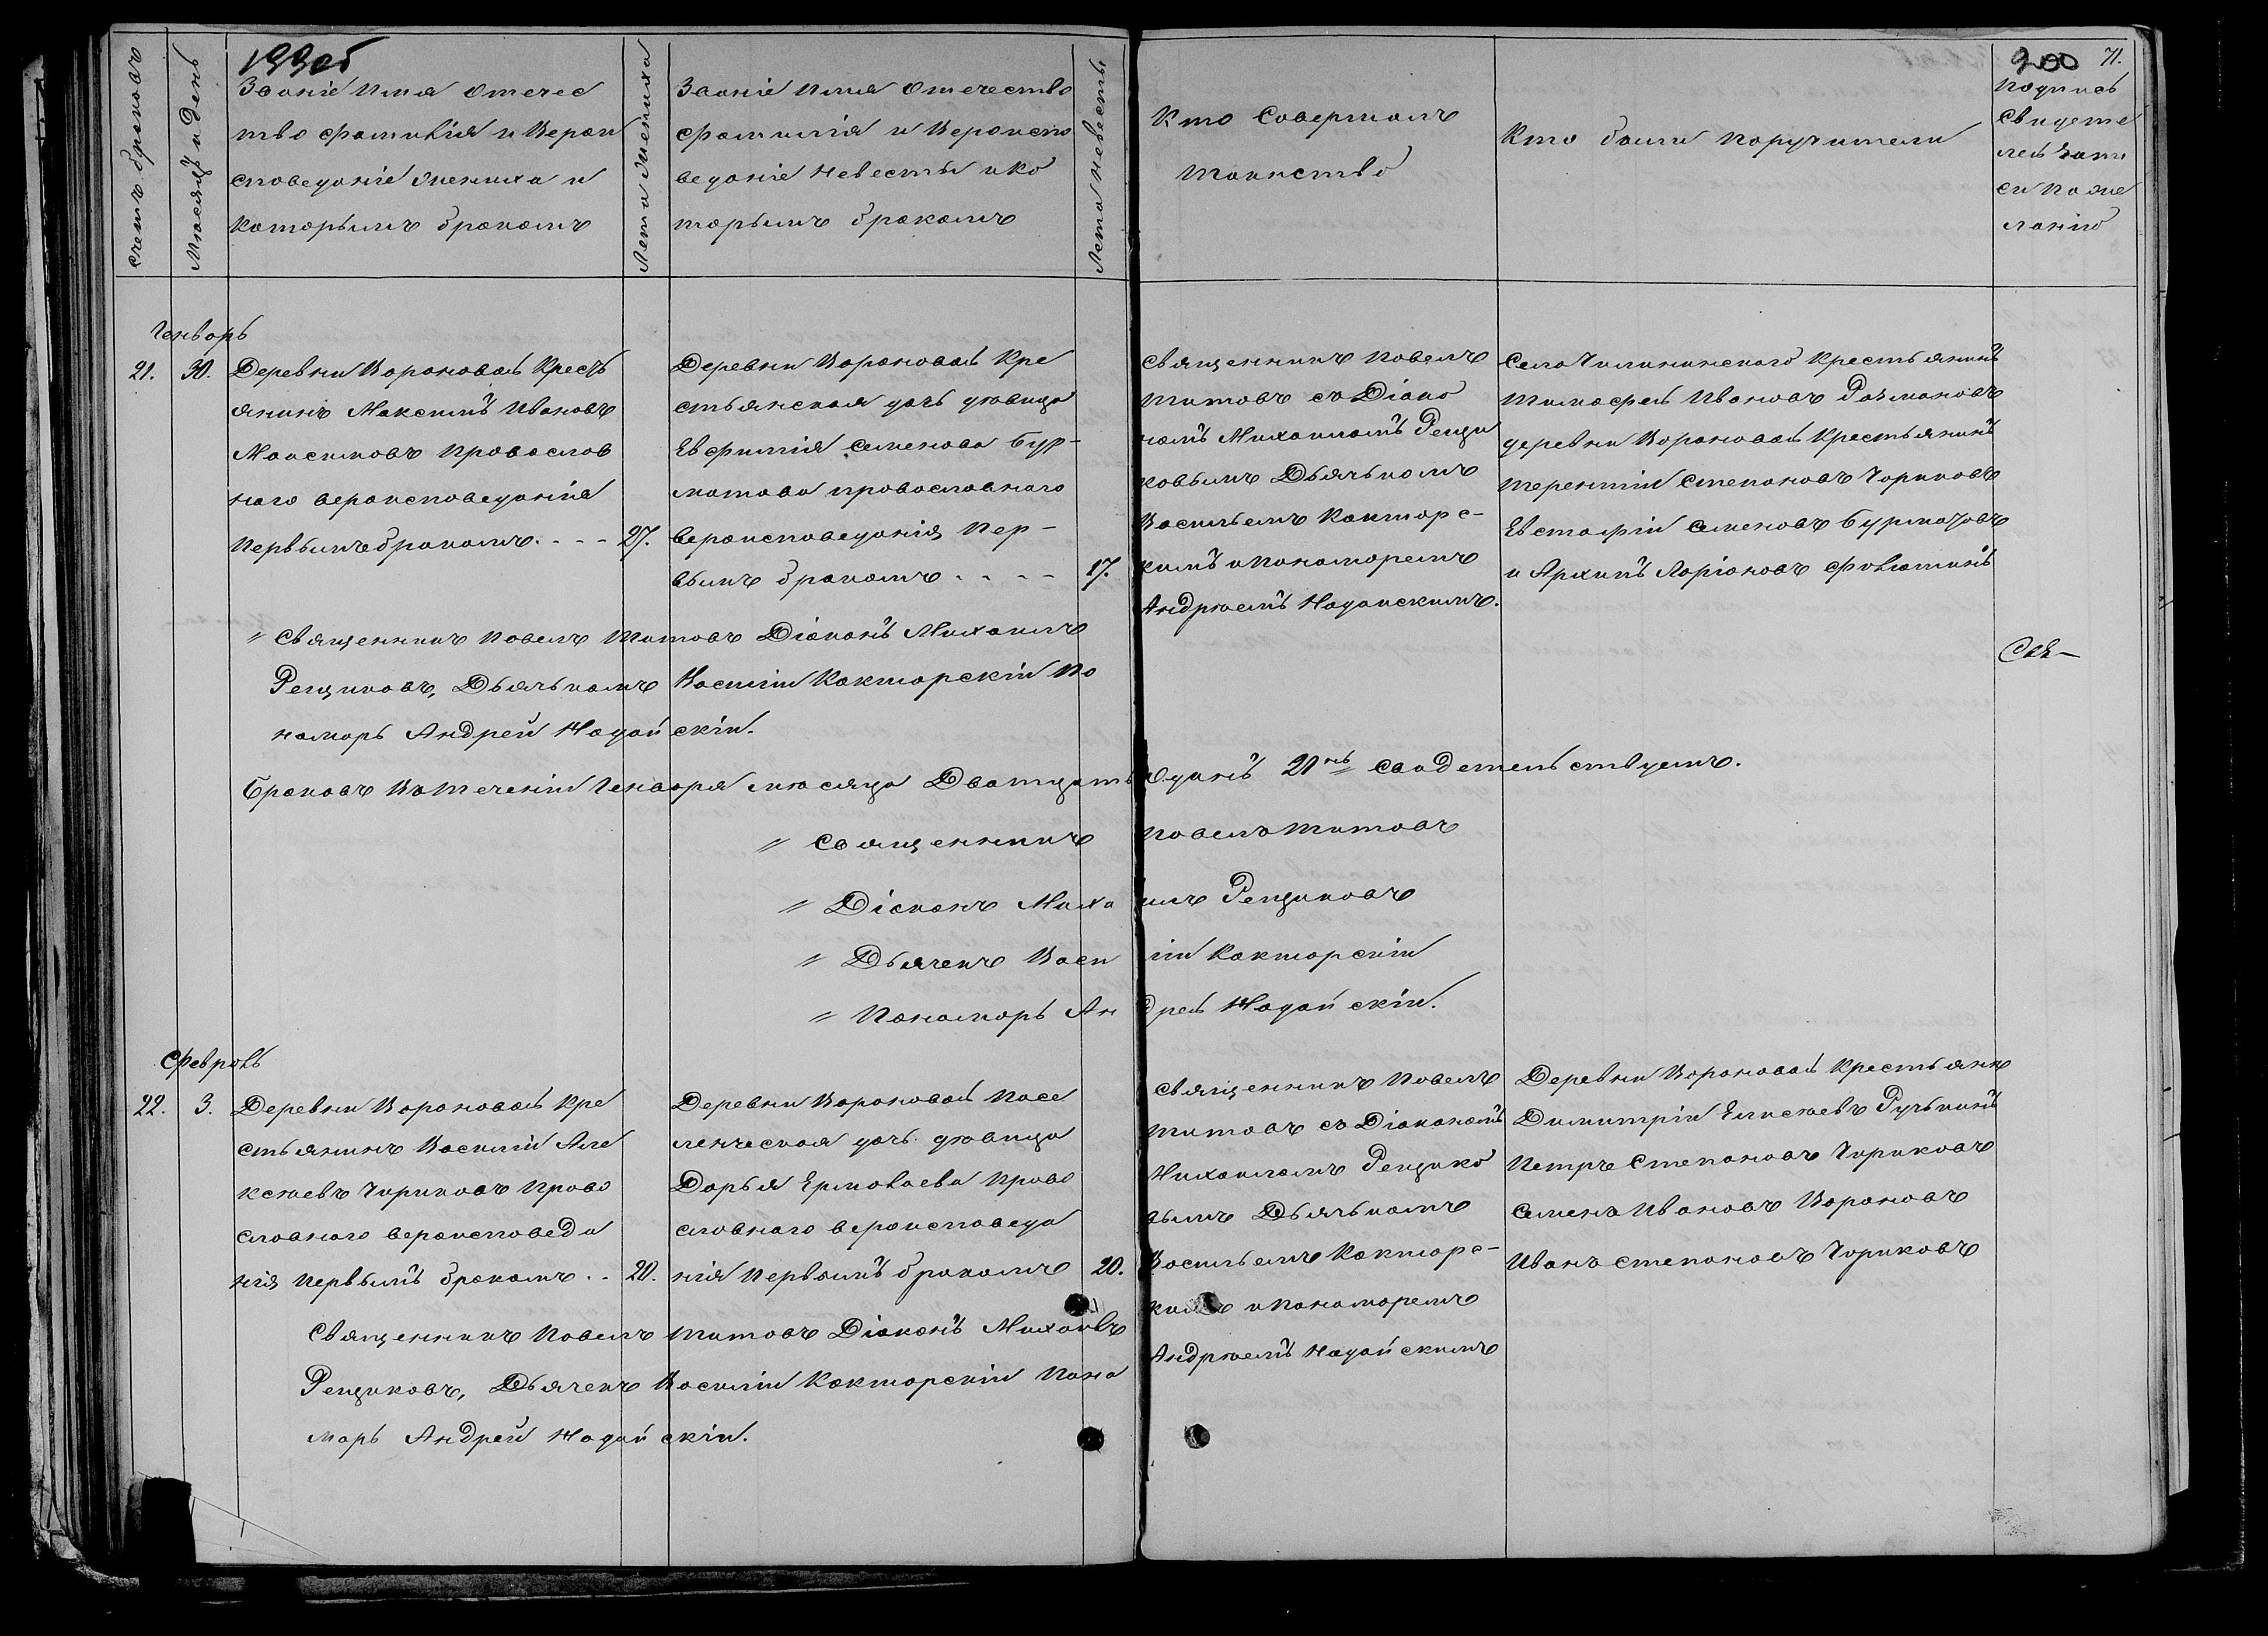 199об
200
71.
счетъ браковъ
Мѣсяцъ и день
Званіе Имя Отечес
тво фамилія и Верои
споведаніе жениха и
которымъ бракомъ
Лета жениха
Званіе Имя Отечество
фамилія и Вероиспо
веданіе невесты и ко
торымъ бракомъ
Лета невесты
Кто Совершалъ
таинство
Кто были поручители
Подпись
Свидете
лей запи
си по же
ланію
Генварь
21.
30.
Деревни Вороновой Крест
янинъ Максимъ Ивановъ
Максимовъ Православ
наго вероисповеданія
Первымъ бракомъ. - - -
27.
Деревни Вороновой Кре
стьянская дочь дѣвица
Евфимія Семенова Бур-
матова православнаго
вероисповеданія Пер-
вымъ бракомъ . . - -
17.
Священникъ Павелъ
Титовъ съ Діако
номъ Михаиломъ Рещи
ковымъ Дьячькомъ
Васильемъ Кокторс-
кимъ и Пономоремъ
Андрѣемъ Надаискимъ.
Села крестьянинъ
Тимофей Ивановъ
деревни Вороновой Крестьянинъ
Терентій Степановъ Чириковъ
Евстафій Семеновъ Бурматовъ
и Архипъ Ларіоновъ
" Священникъ Павелъ Титовъ Діаконъ Михаилъ
Рещиковъ, Дьячькомъ Василій Кокторскій По
номорь Андрей Надайскій.
Свя-
Браковъ въ теченіи Генваря мѣсяца Дватцать Одинъ 21нъ свидетельствуемъ.
" Священникъ Павелъ Титовъ
" Діаконъ Михаилъ Рещиковъ
" Дьячекъ Василій Кокторскій
" Пономорь Андрей Надайскій.
Февраль
22.
3.
Деревни Вороновой Кре
стьянинъ Василій Але
ксѣевъ Чириковъ Право
славнаго вероисповеда
нія Первымъ бракомъ . .
20.
Деревни Вороновой Посе
ленческая дочь дѣвица
Дарья Ермолаева Право
славнаго вероисповеда
нія Первымъ бракомъ
20.
Священникъ Павелъ
Титовъ съ Діакономъ
Михаиломъ Рещико
вымъ Дьячькомъ
Васильемъ Кокторс-
кимъ и Пономоремъ
Андрѣемъ Надайскимъ
Деревни Вороновой Крестьяне
Димитрій Елисѣевъ Ручькинъ
Петръ Степановъ Чириковъ
Семенъ Ивановъ Вороновъ
Иванъ Степановъ Чириковъ
Священникъ Павелъ Титовъ Діаконъ Михаилъ
Рещиковъ, Дьячекъ Василій Кокторскій Поно
марь Андрей Надайскій.